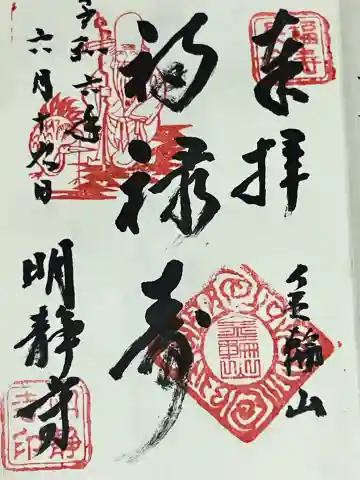 奉拝
金輪山
福禄寿
令和六年
六月十九日
明静寺